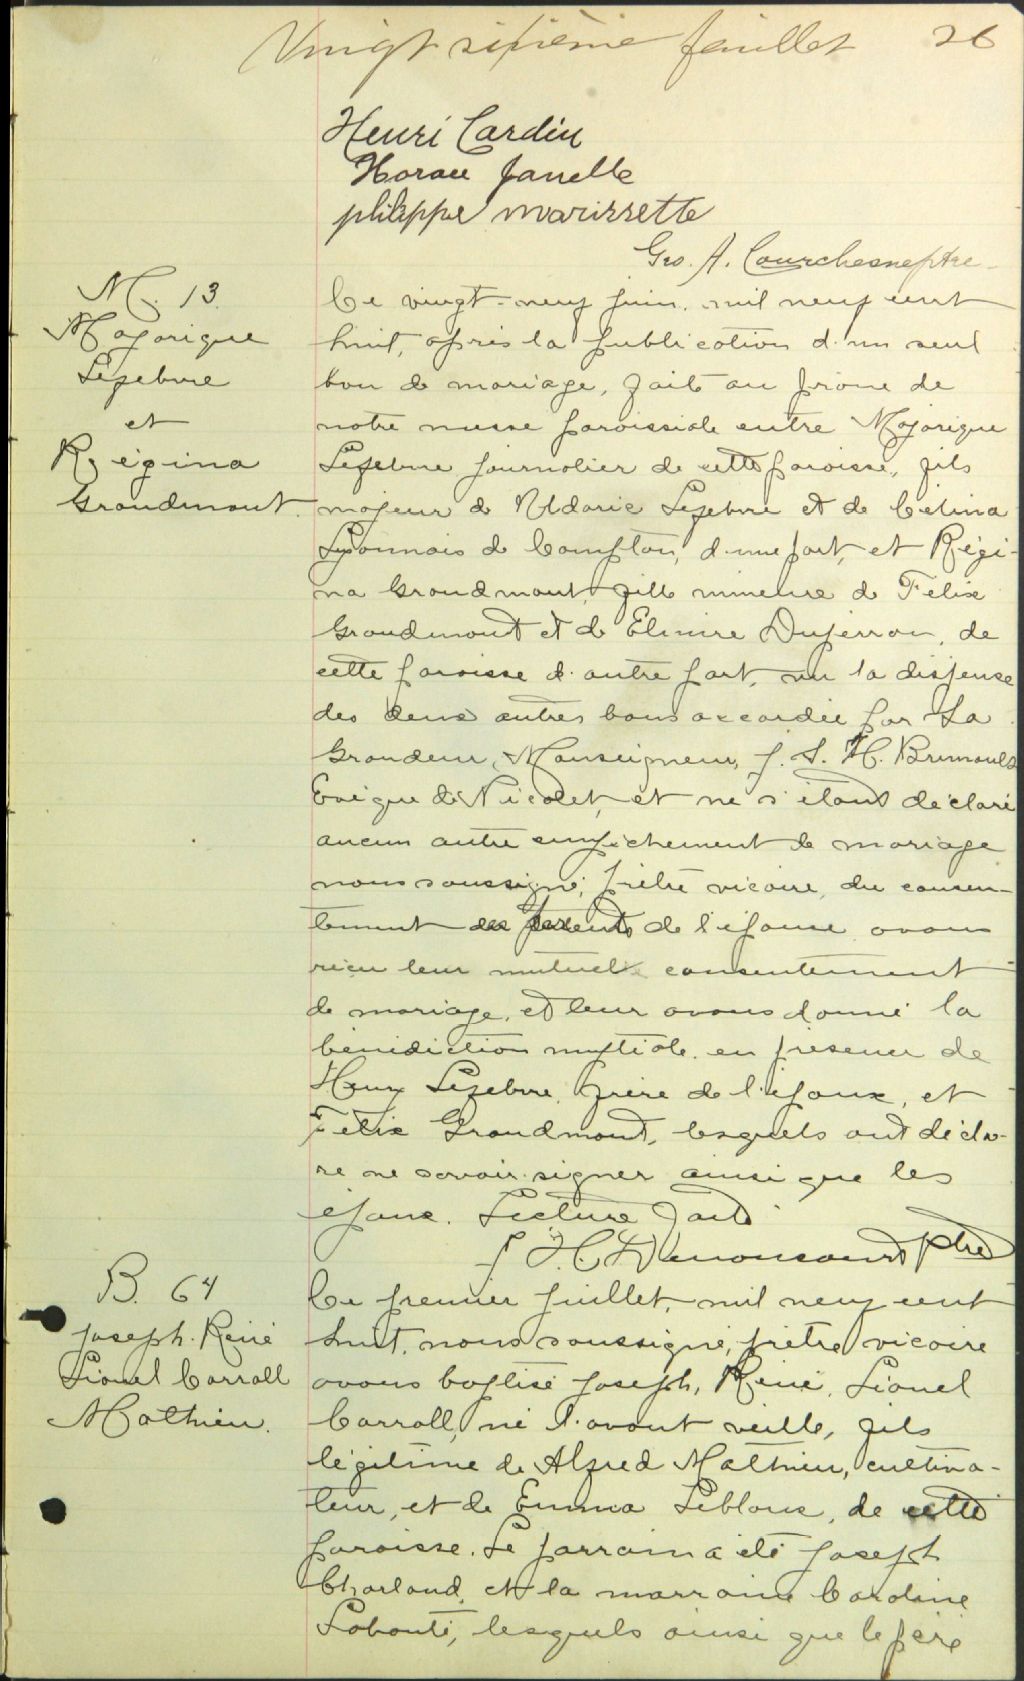 Vingt sixième feuillet 26
Henri Cardin
Horace Janelle
philippe Marissette
Geo. A. Courchesne ptre
M. 13
Majorique
Lefebvre
et
Régina
Grandmont.
Ce vingt-neuf juin, mil neuf cent
huit, après la publication d'un seul
ban de mariage, faite au prône de
notre messe paroissiale entre Majorique
Lefebvre journalier de cette paroisse, fils
majeur de Uldoric Lefebvre et de Célina
Lyonnais de Compton, d'une part, et Régi-
na Grandmont, fille mineure de Félix
Grandmont et de Elmire Duferron, de
cette paroisse d'autre part, vu la dispense
des deux autres bans accordée par Sa
Grandeur, Monseigneur, J. S. H. Brunault
Evêque de Nicolet, et ne s'étant déclaré
aucun autre empêchement de mariage
nous soussigné, prêtre vicaire, du consen-
tement des parents de l'épouse avons
reçu leur mutuel consentement
de mariage, et leur avons donné la
bénédiction nuptiale en présence de
Henry Lefebvre, frère de l'époux, et
Félix Grandmont, lesquels ont décla-
ré ne savoir signer ainsi que les
époux. Lecture faite
J. H. Denoncourt ptre
B. 64
Joseph. René
Lionel Carroll
Mathieu.
Ce premier juillet, mil neuf cent
huit, nous soussigné, prêtre vicaire
avons baptisé Joseph, René, Lionel
Carroll, né l'avant veille, fils
légitime de Alfred Mathieu, cultiva-
teur, et de Emma Leblanc, de cette
paroisse. Le parrain a été Joseph
Charland, et la marraine Caroline
Labonté, lesquels ainsi que le père